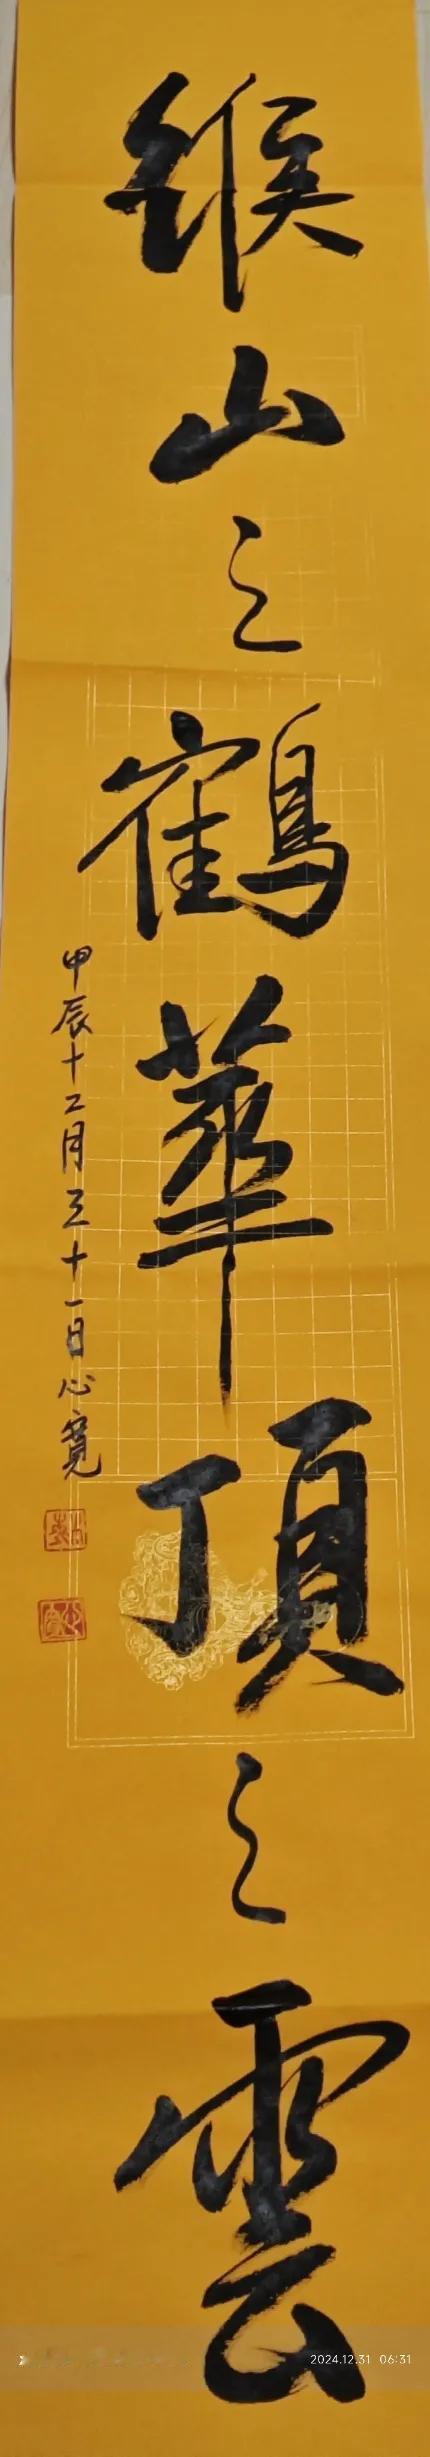 緱山之鶴華頂之雲
甲辰十二月三十一日心寬
2024.12.31 06:31